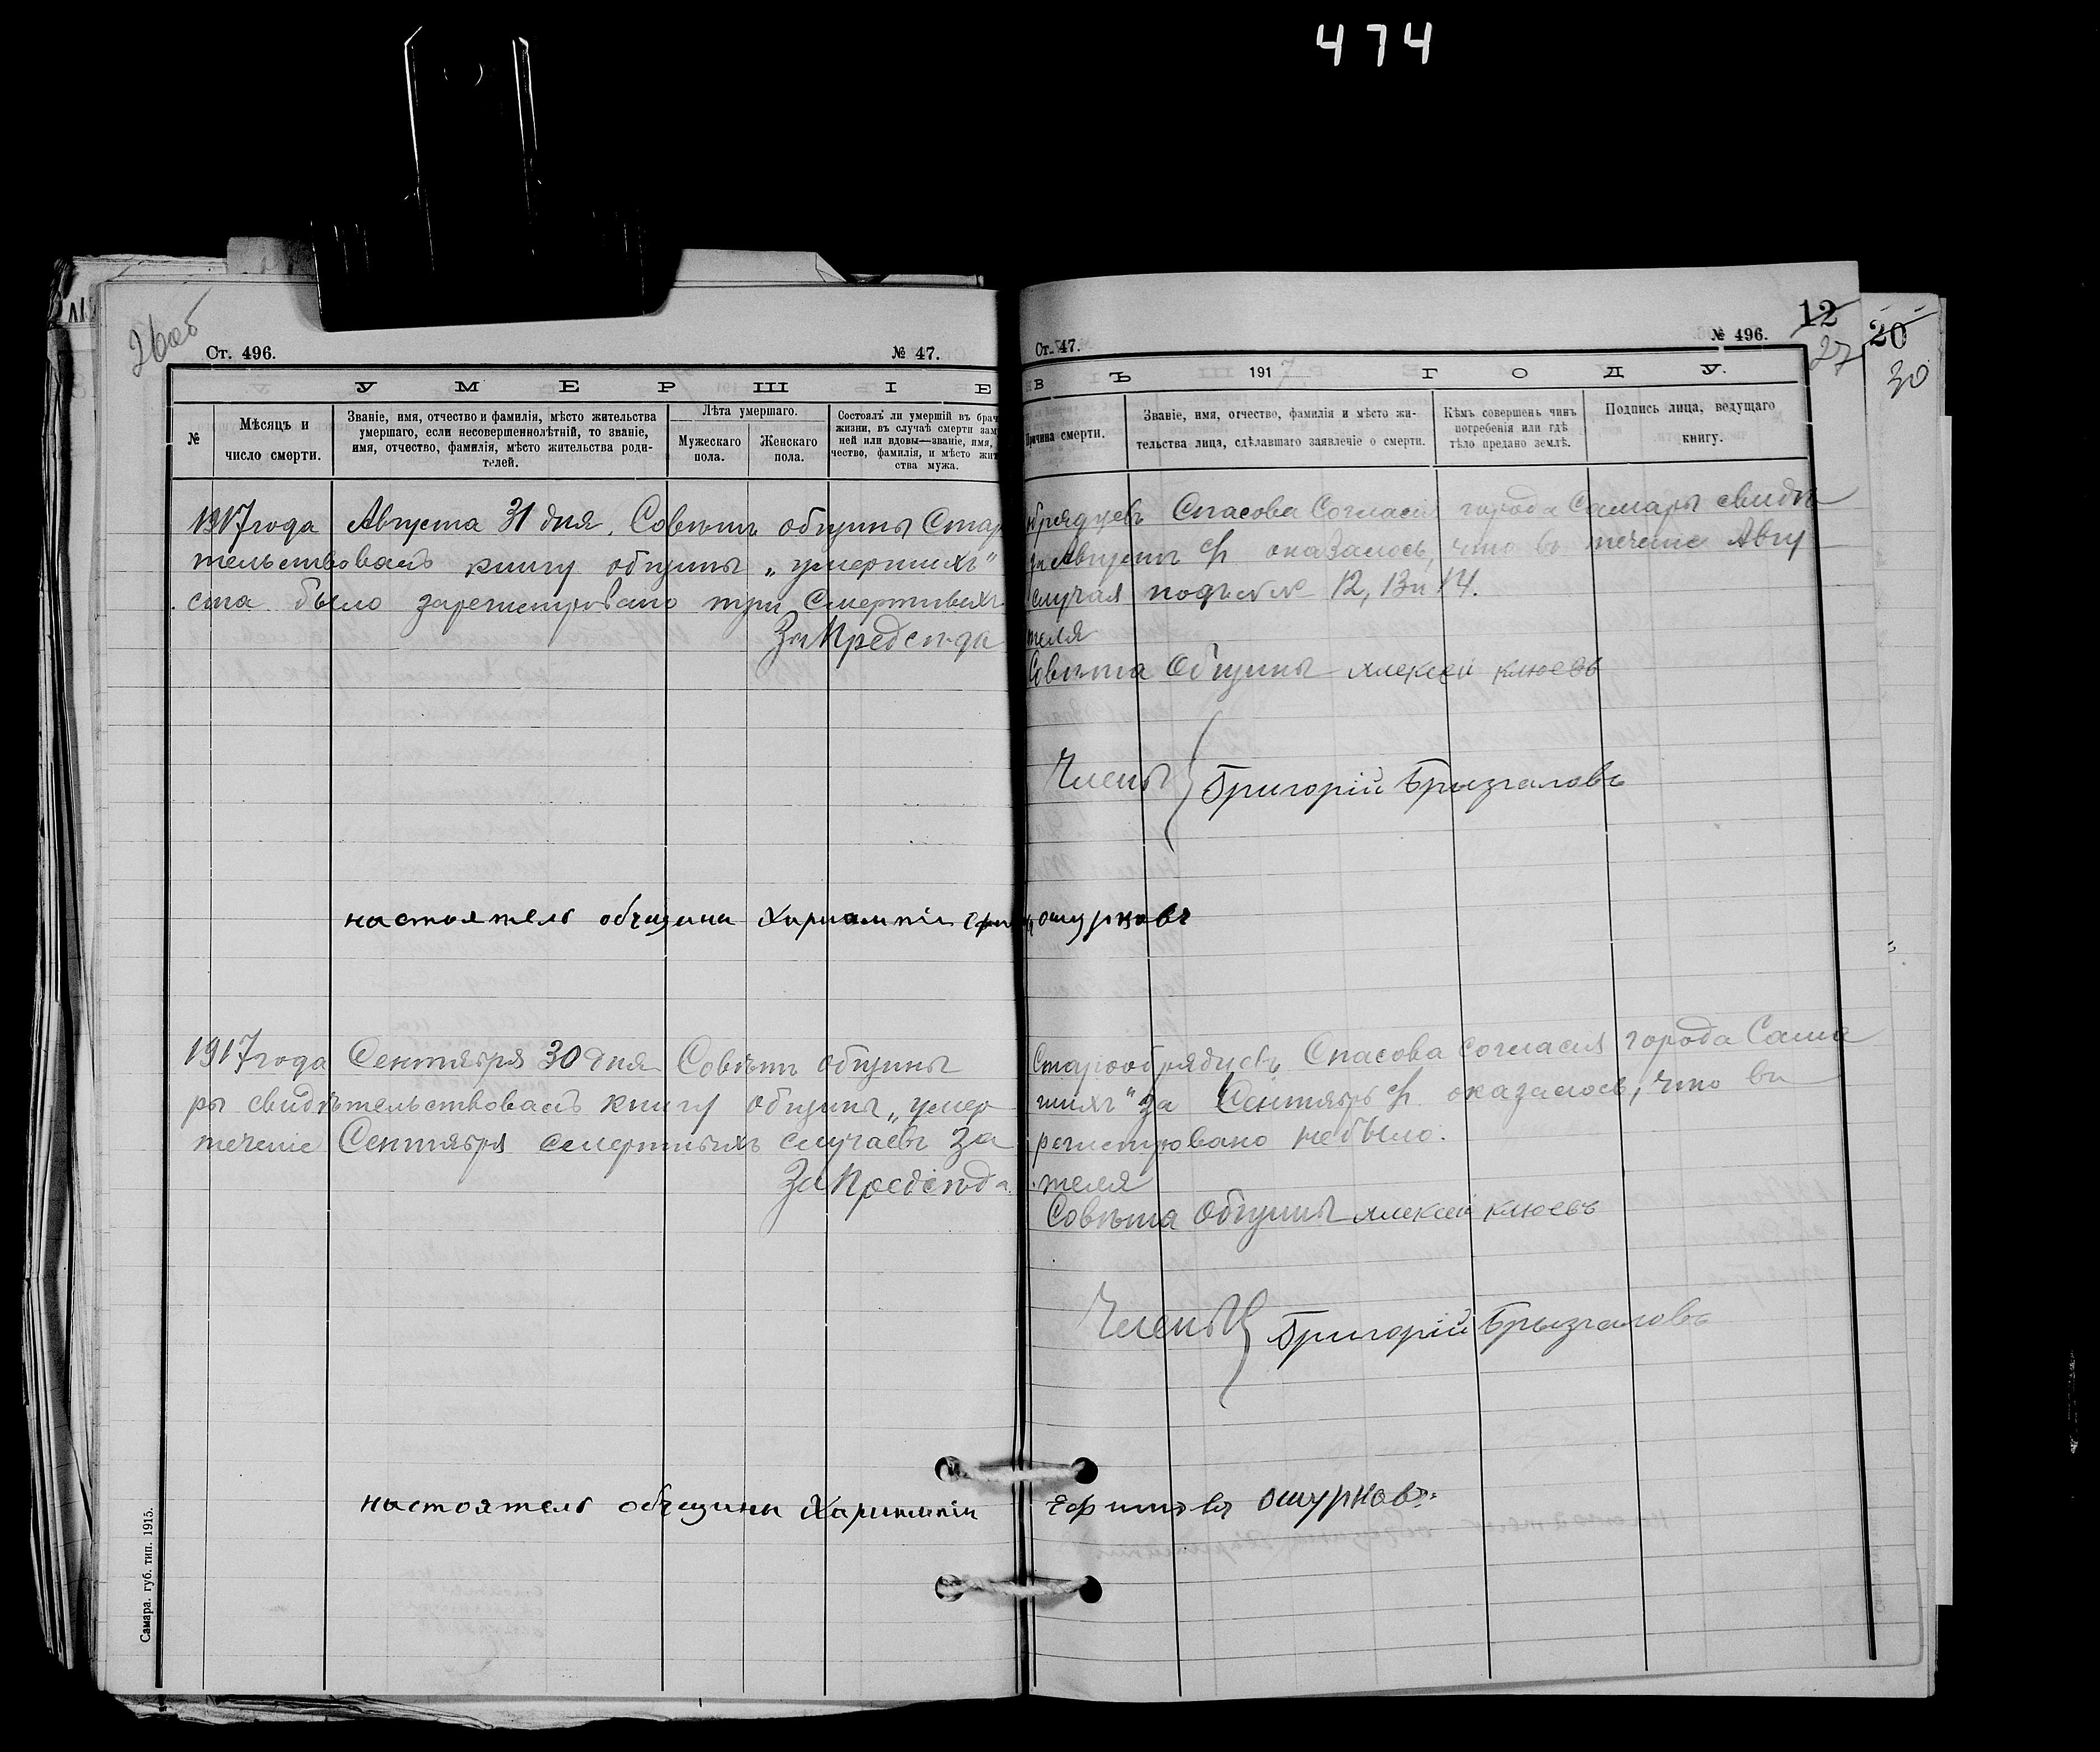 474
26об
Ст. 496. № 47.
Ст. 47. № 496. 12 20
27 30
У М Е Р Ш І Е
ВЪ 1917 Г О Д У.
№
Мѣсяцъ и число смерти.
Званіе, имя, отчество и фамилія, мѣсто жительства
умершаго, если несовершеннолѣтній, то званіе,
имя, отчество, фамилія, мѣсто жительства роди-
телей.
Лѣта умершаго.
Мужескаго пола.
Женскаго пола.
Состоялъ ли умершій въ брач
жизни, въ случаѣ смерти зам
ней или вдовы—званіе, имя,
чество, фамилія, и мѣсто жит
ства мужа.
Причина смерти.
Званіе, имя, отчество, фамилія и мѣсто жи-
тельства лица, сдѣлавшаго заявленіе о смерти.
Кѣмъ совершенъ чинъ
погребенія или гдѣ
тѣло предано землѣ.
Подпись лица, ведущаго
книгу.
1917 года Августа 31 дня. Совѣтъ общины Стар обрядцевъ Спасова Согласія города Самары свидѣ
тельствовалъ книгу общины „умершихъ" за Августъ и оказалось, что въ теченіе Авгу
ста было зарегистровано три смертныхъ случая подъ №№ 12, 13 и 14.
За Предсѣда теля
Совѣта Общины Алексей Клюевъ
Члены Григорій Брызгаловъ
настоятель общещины Харлампіи ошурковъ
1917 года Сентября 30 дня Совѣтъ общины Старообрядцевъ Спасова Согласія города Сама
ры свидѣтельствовалъ книгу общины „умер шихъ" за Сентябрь и оказалось, что въ
теченіе Сентября смертныхъ случаевъ за регистровано не было.
За Предсѣда теля
Совѣта Общины Алексей Клюевъ
Члены Григорій Брызгаловъ
настоятель общещины Харлампіи Ефимовъ ошурковъ
Самара. губ. тип. 1915.